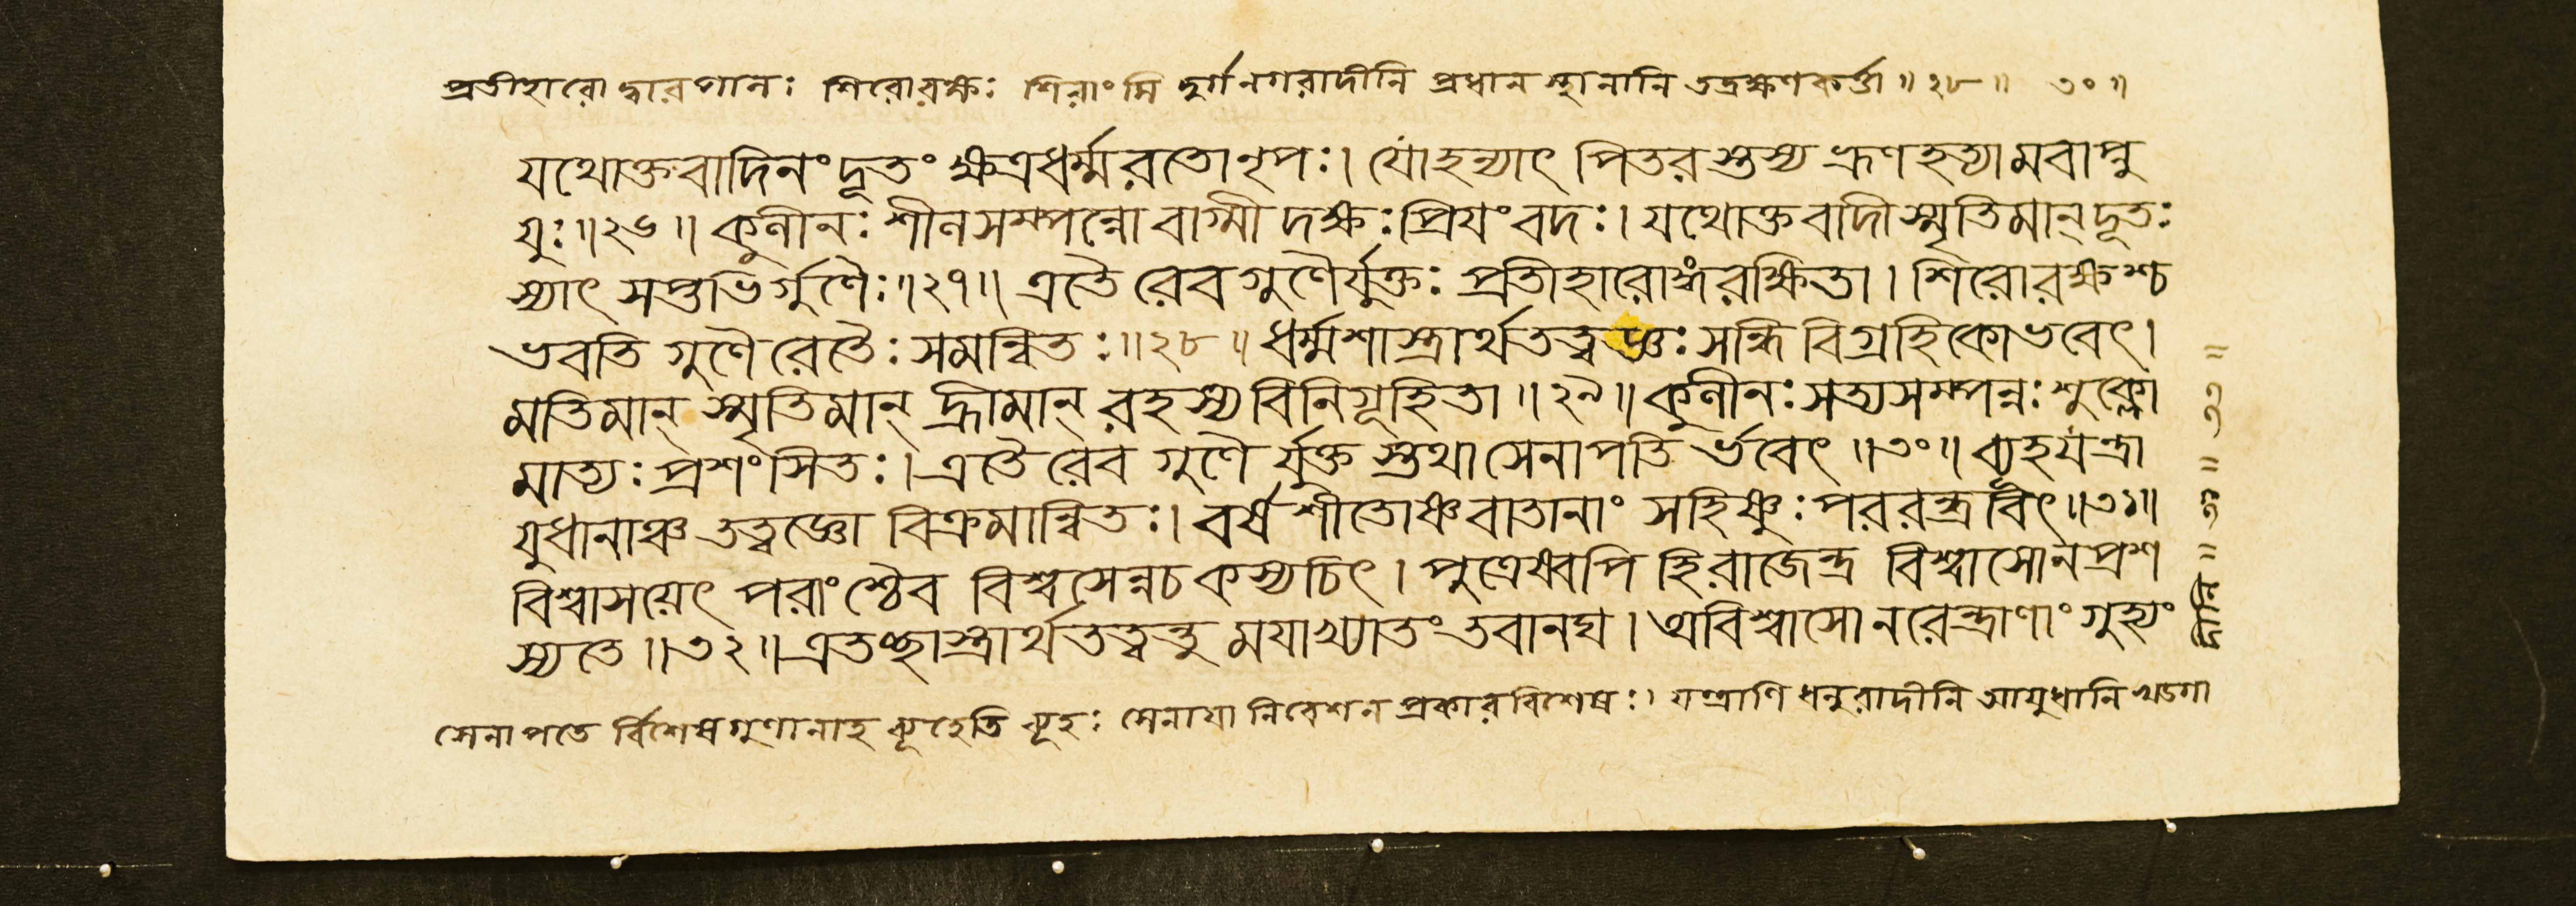 প্রতীহারো দ্বারপালঃ শিরোরক্ষঃ শিরাংসি দুর্গনগরাদীনি প্রধান স্থানানি তদ্রক্ষণকর্ত্তা॥২৮॥ ৩০॥
যথোক্তবাদিনং দূতং ক্ষত্রধর্ম্মরতোনৃপঃ। যোহন্যাৎ পিতরস্তস্য ভ্রূণহত্যামবাপ্নু
যুঃ॥২৬॥ কুলীনঃ শীলসম্পন্নো বাগ্মী দক্ষঃ প্রিয়ংবদঃ। যথোক্তবাদী স্মৃতিমান্ দূতঃ
স্যাৎ সপ্তভির্গুণৈঃ॥২৭॥ এতৈরেব গুণৈর্যুক্তঃ প্রতীহারোস্যরক্ষিতা। শিরোরক্ষশ্চ
ভবতি গুণৈরেতৈঃ সমন্বিতঃ॥২৮॥ ধর্ম্মশাস্ত্রার্থতত্ত্বজ্ঞঃ সন্ধিবিগ্রহিকোভবেৎ।
মতিমান্ স্মৃতিমান্ হ্রীমান্ রহস্যবিনিগূহিতা॥২৯॥ কুলীনঃ সত্যসম্পন্নঃ শুক্লো
মাত্যঃ প্রশংসিতঃ। এতৈরেব গুণৈর্যুক্ত স্তথা সেনাপতি র্ভবেৎ॥৩০॥ ব্যূহযন্ত্রা
যুধানাঞ্চ তত্ত্বজ্ঞো বিক্রমান্বিতঃ। বর্ষশীতোষ্ণবাতানাং সহিষ্ণুঃ পররন্ধ্রবিৎ॥৩১॥
বিশ্বাসয়েৎ পরাংশ্চৈব বিশ্বসেন্নচ কস্যচিৎ। পুত্রেষ্বপি হি রাজেন্দ্র বিশ্বাসোনপ্রশ
স্যতে॥৩২॥ এতচ্ছাস্ত্রার্থতত্ত্বন্তু ময়াখ্যাতং তবানঘ। অবিশ্বাসো নরেন্দ্রাণাং গুহ্যং
সেনাপতে র্বিশেষগুণানাহ ব্যূহেতি ব্যূহঃ সেনায়া নিবেশন প্রকারবিশেষঃ। যন্ত্রাণি ধনুরাদীনি আয়ুধানি খড্গা